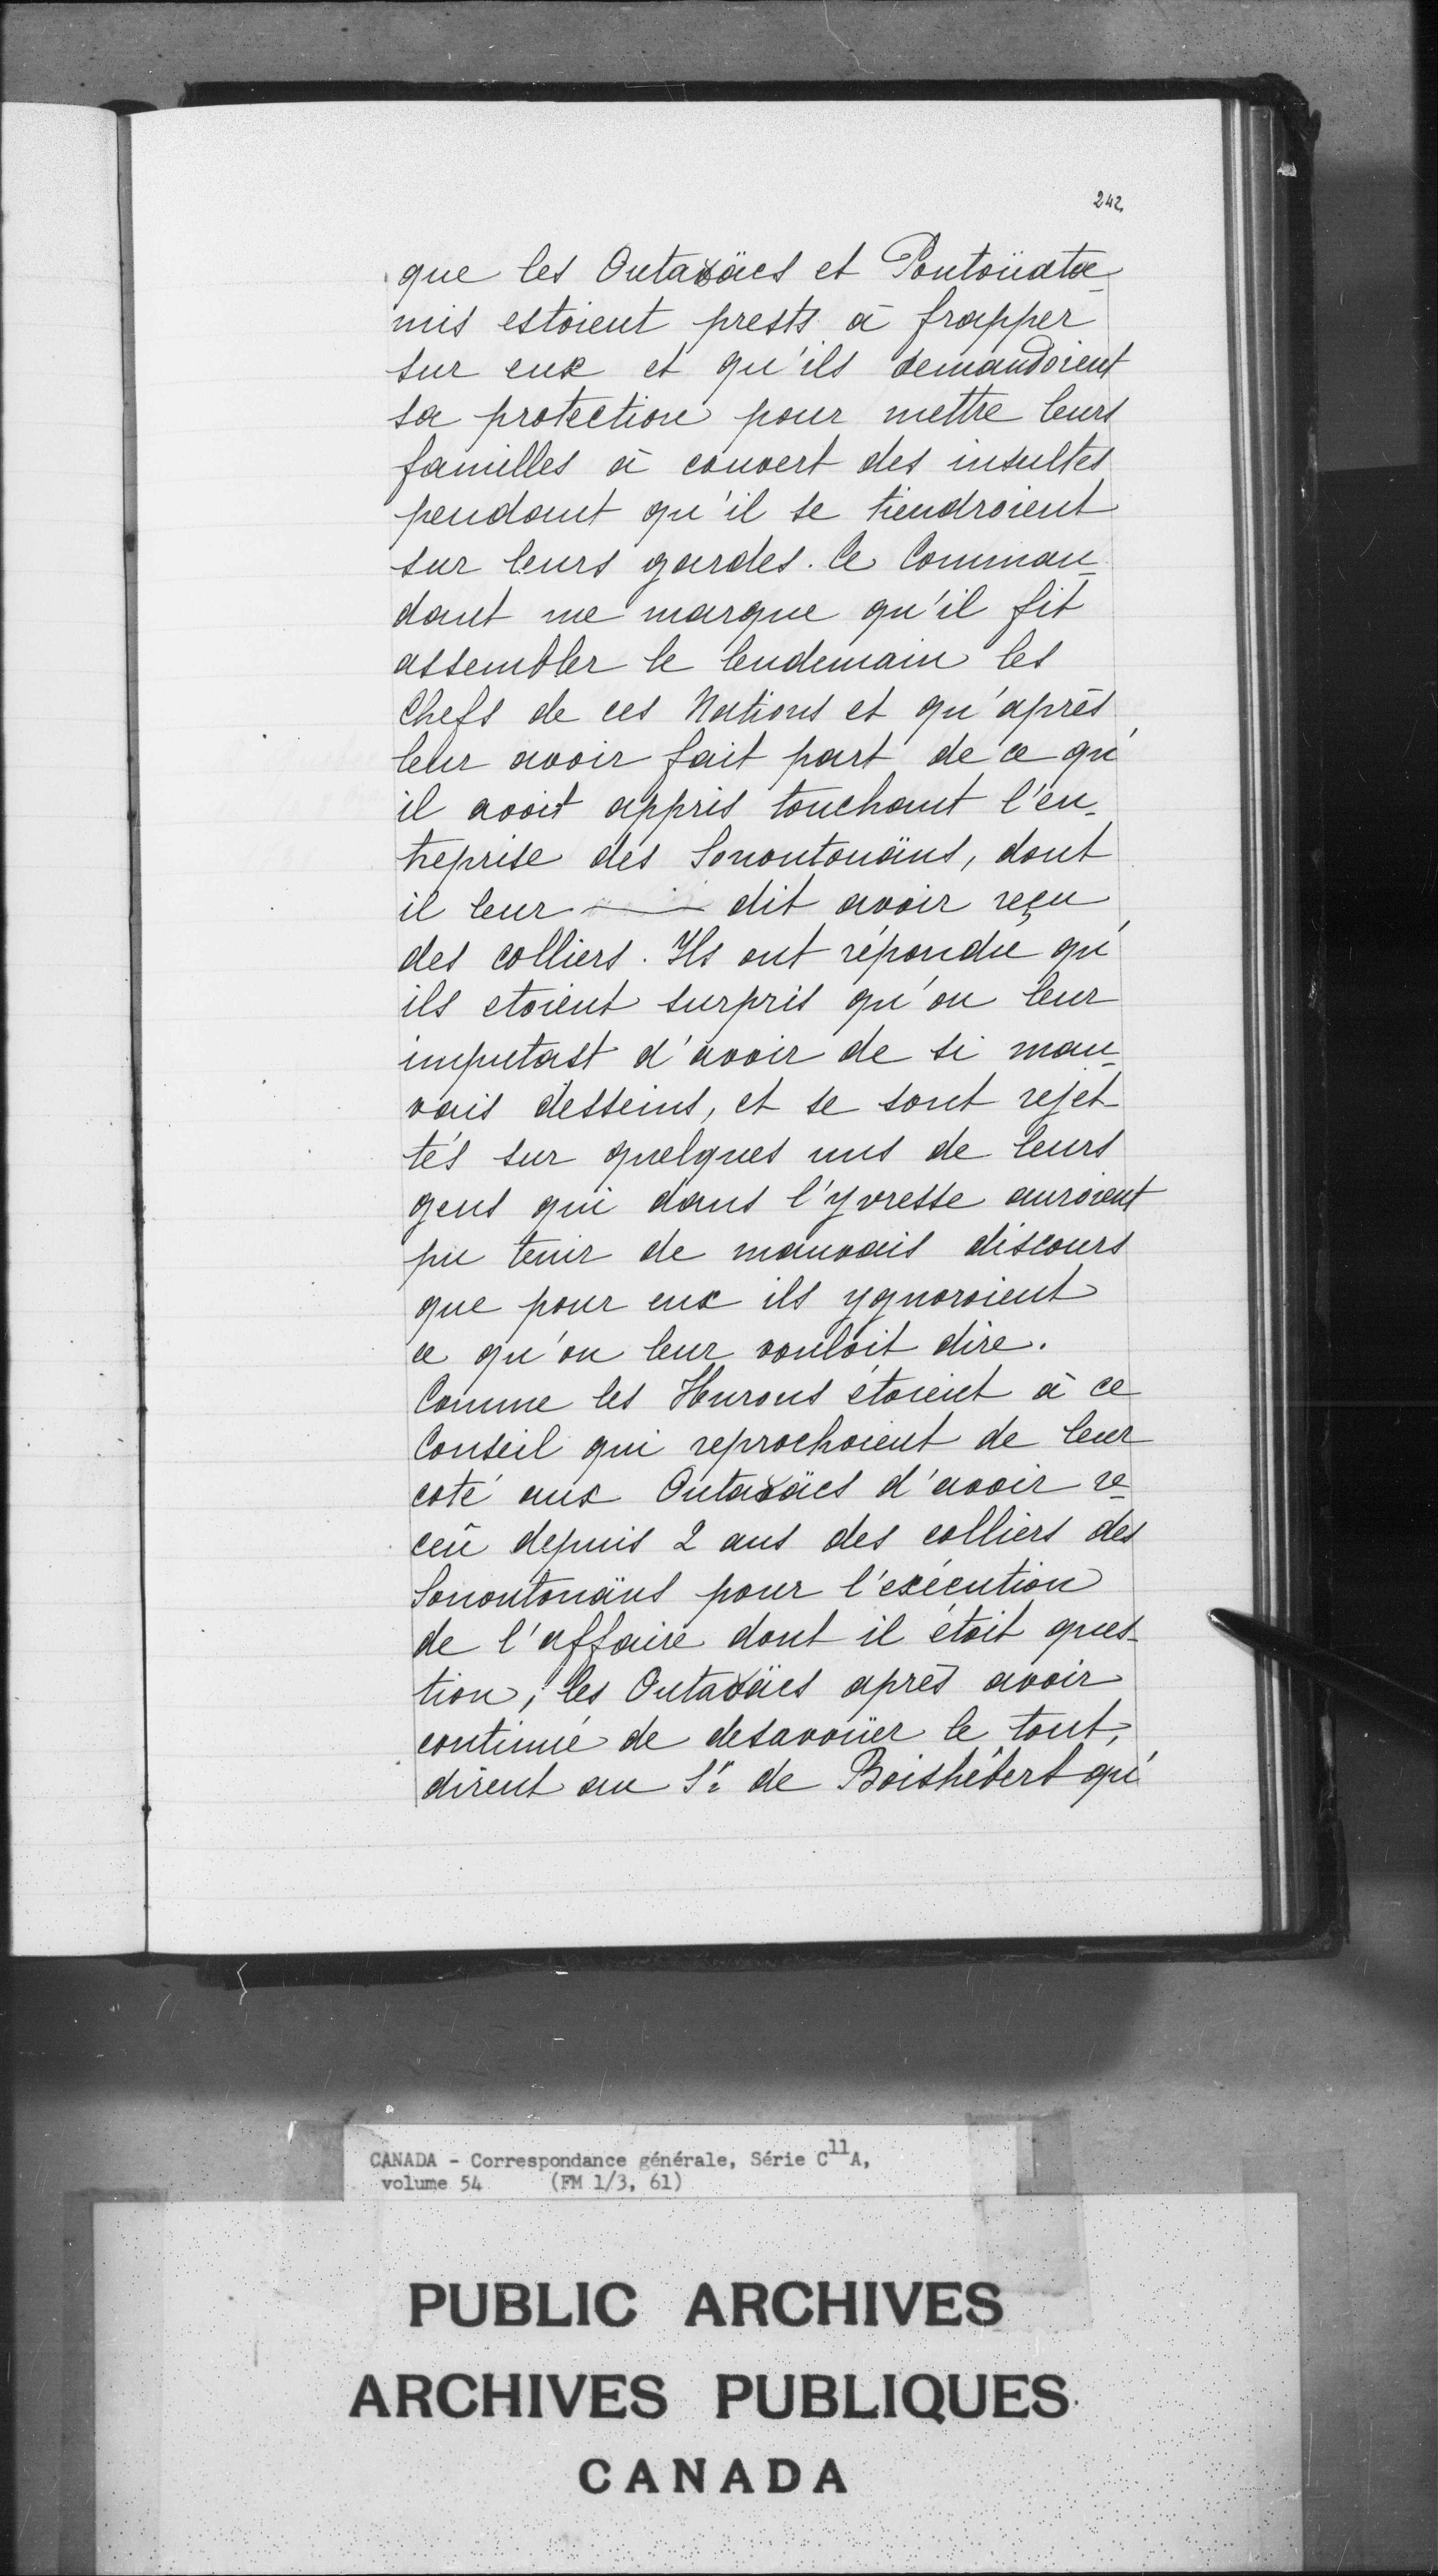 242
que les Outa8äcs et Poutoüata-
mis estoient prests à frapper
sur eux et qu'ils demandoient
sa protection pour mettre leurs
familles à couvert des insultes
pendant qu'il se tiendroient
sur leurs gardes. Ce Comman-
dant me marque qu'il fit
assembler le lendemain les
Chefs de ces Nations et qu'après
leur avoir fait part de ce qu'
il avoit appris touchant l'en-
treprise des Sonontouäns, dont
il leur — dit avoir reçu
des colliers. Ils ont répondu qu'
ils etoient surpris qu'on leur
imputast d'avoir de si mau-
vais desseins, et se sont rejet
tés sur quelques uns de leurs
gens qui dans l'yvresse auroient
pu tenir de mauvais discours
que pour eux ils ygnoroient
ce qu'on leur vouloit dire.
Comme les Hurons étoient à ce
Conseil qui reprochoient de leur
coté aux Outa8äcs d'avoir re-
ceü depuis 2 ans des colliers des
Sonontouäns pour l'exécution
de l'affaire dont il étoit ques-
tion, les Outa8äcs après avoir
continué de desavoüer le tout,
dirent au Sr. de Boishébert qu'
CANADA - Correspondance générale, Série C11A,
volume 54 (FM 1/3, 61)
PUBLIC ARCHIVES
ARCHIVES PUBLIQUES
CANADA